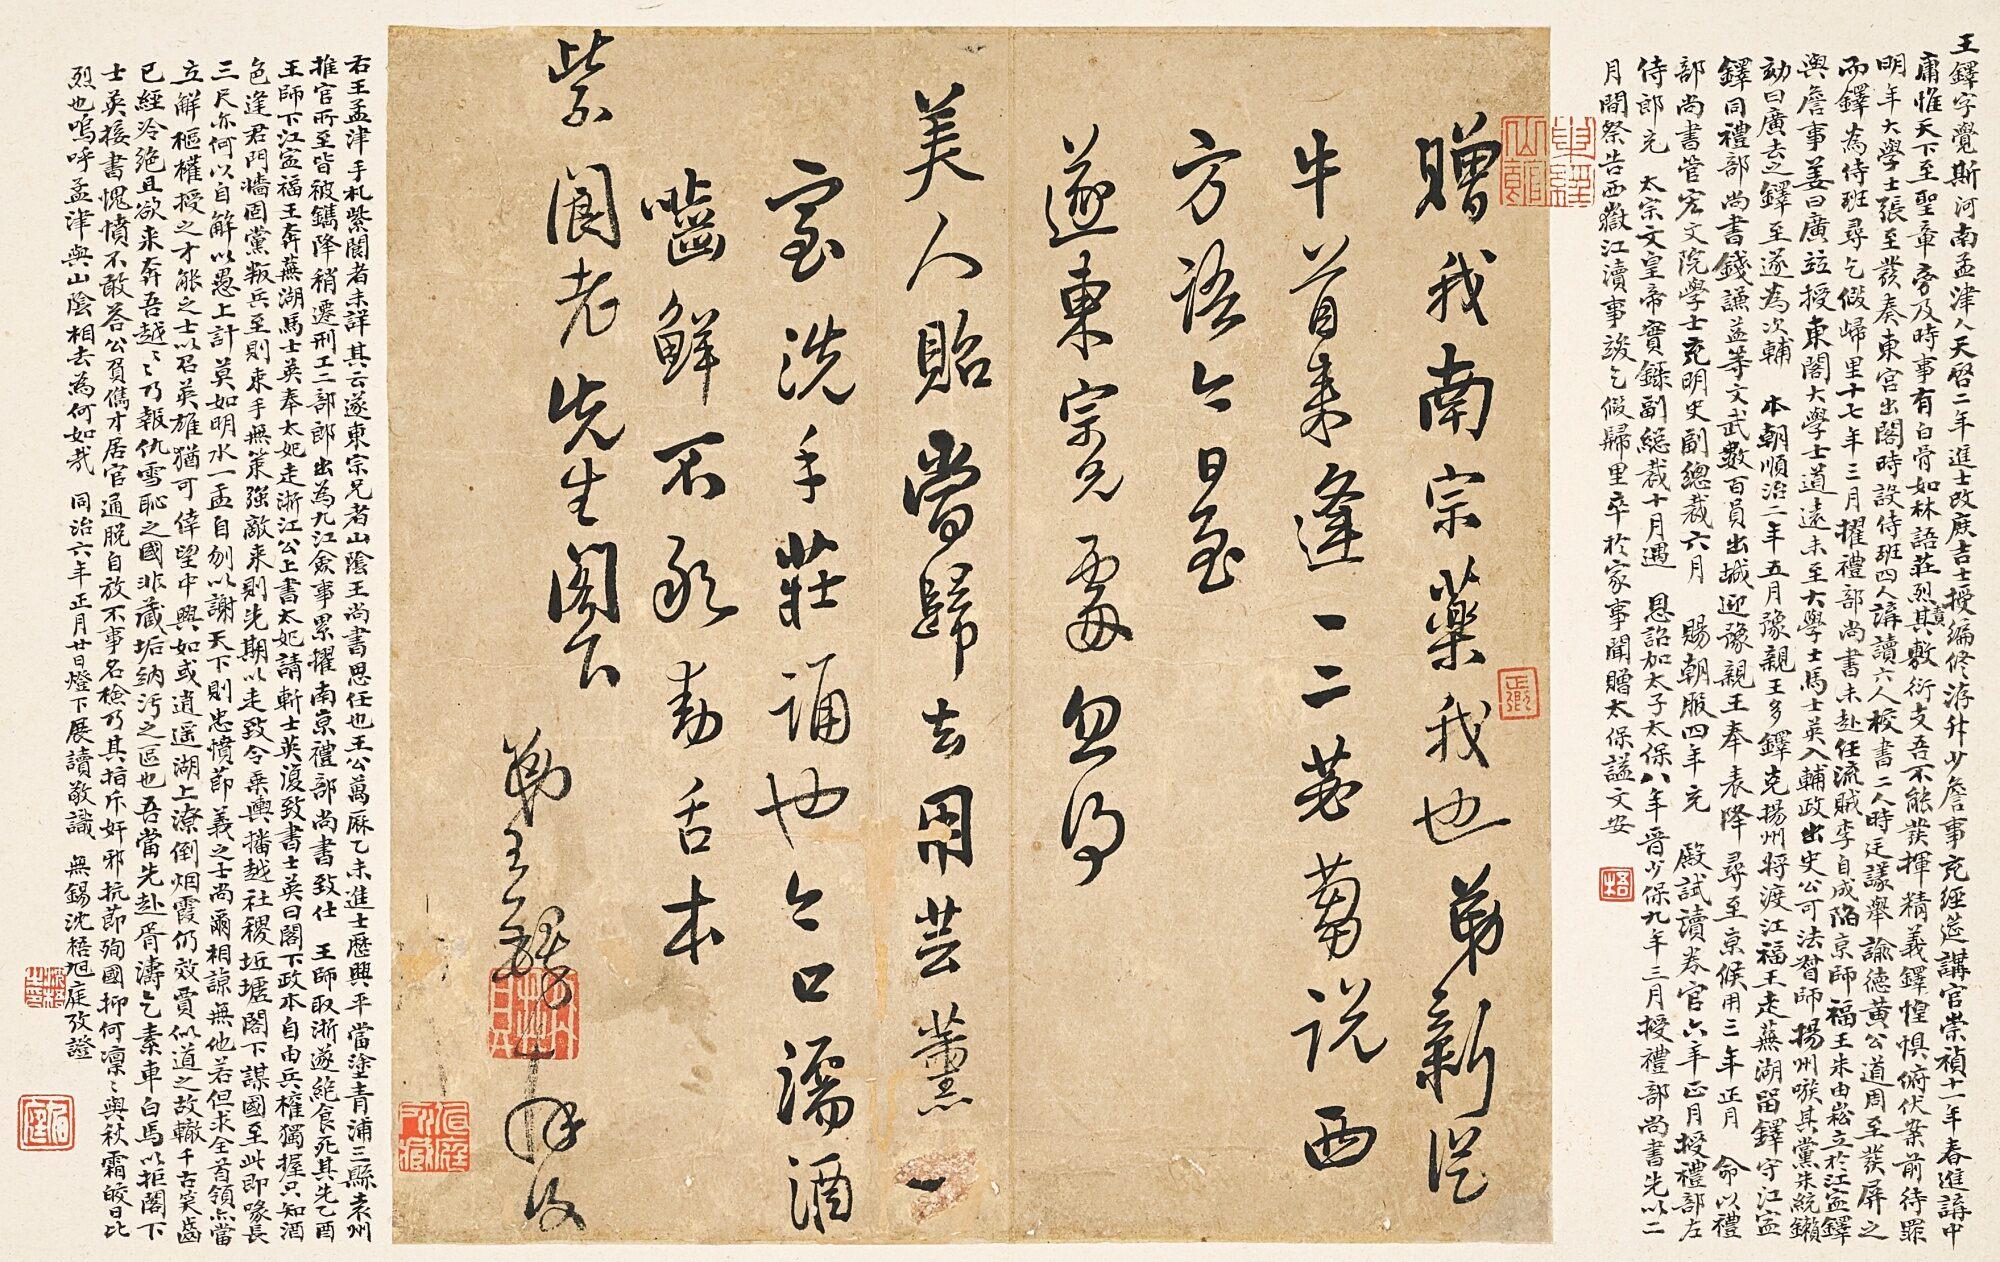 王鐸字覺斯河南孟津人天啓二年進士改庶吉士授編修洊升少詹事充經筵講官崇禎十一年春進講中
庸惟天下至聖章旁及時事有白骨如林語莊烈責其敷衍支吾不能發揮精義鐸惶懼俯伏案前待罪
明年大學士張至發奏東宮出閣時設侍班四人講讀六人校書二人時廷議舉諭德黃公道周至發屏之
而鐸為侍班尋乞假歸里十七年三月擢禮部尚書未赴任流賊李自成陷京師福王朱由崧立於江寍鐸
與詹事姜曰廣竝授東閣大學士道遠未至大學士馬士英入輔政出史公可法督師揚州嗾其黨朱統䥧
劾曰廣去之鐸至遂為次輔 本朝順治二年五月豫親王多鐸克揚州將渡江福王走蕪湖留鐸守江寍
鐸同禮部尚書錢謙益等文武數百員出城迎豫親王奉表降尋至京候用三年正月 命以禮
部尚書管宏文院學士充明史副總裁六月 賜朝服四年充 殿試讀卷官六年正月授禮部左
侍郎充 太宗文皇帝實錄副總裁十月遇 恩詔加太子太保八年晉少保九年三月授禮部尚書先以二
月間祭告西嶽江瀆事竣乞假歸里卒於家事聞贈太保謚文安
贈我南宗藥我也弟新從
牛首來逢一二苾蒭說西
方語今日至
遂東宗兄處忽得
美人貽當歸去用芸薰一
室洗手莊誦也今口濡酒
嚙鮮不敢動舌本
紫閬老先生閣下
弟王鐸
右王孟津手札紫閬者未詳其云遂東宗兄者山陰王尚書思任也王公萬厤乙未進士歷興平當塗青浦三縣袁州
推官所至皆被鐫降稍遷刑工二部郎出為九江僉事累擢南京禮部尚書致仕 王師取浙遂絶食死其先乙酉
王師下江寍福王奔蕪湖馬士英奉太妃走浙江公上書太妃請斬士英復致書士英曰閣下政本自由兵權獨握只知酒
色逢君門墻固黨叛兵至則束手無策強敵來則先期以走致令乘輿播越社稷坵墟閣下謀國至此即喙長
三尺亦何以自解以愚上計莫如明水一盂自刎以謝天下則忠憤節義之士尚爾相諒無他若但求全首領亦當
立解樞權授之才能之士以召英雄猶可倖望中興如或逍遥湖上潦倒烟霞仍效賈似道之故轍千古笑齒
已經冷絶且欲來奔吾越〻乃報仇雪恥之國非藏垢納汚之區也吾當先赴胥濤乞素車白馬以拒閣下
士英接書愧憤不敢答公負儁才居官通脫自放不事名檢乃其指斥奸邪抗節殉國抑何凛〻與秋霜皎日比
烈也嗚呼孟津與山陰相去為何如哉 同治六年正月廿日燈下展讀敬識 無錫沈梧旭庭攷證